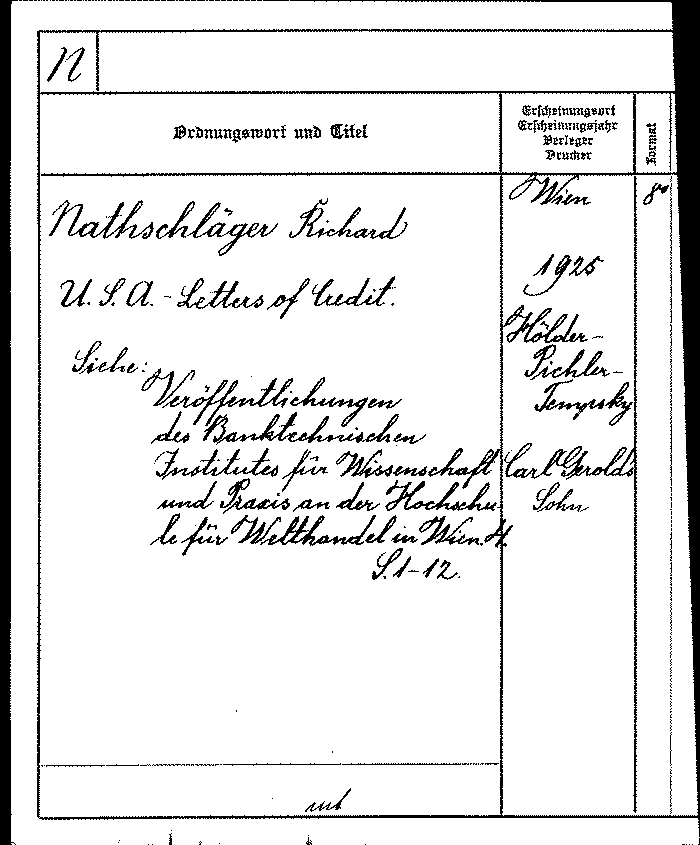 N
Ordnungswort und Titel
Erscheinungsort
Erscheinungsjahr
Verleger
Drucker
Format
Nathschläger Richard
U. S. A. - Letters of Credit.
Siehe:
Veröffentlichungen
des Banktechnischen
Institutes für Wissenschaft
und Praxis an der Hochschu-
le für Welthandel in Wien. 4.
S. 1-12.
Wien
1925
Hölder-
Pichler-
Tempsky
Carl Gerolds
Sohn
8°